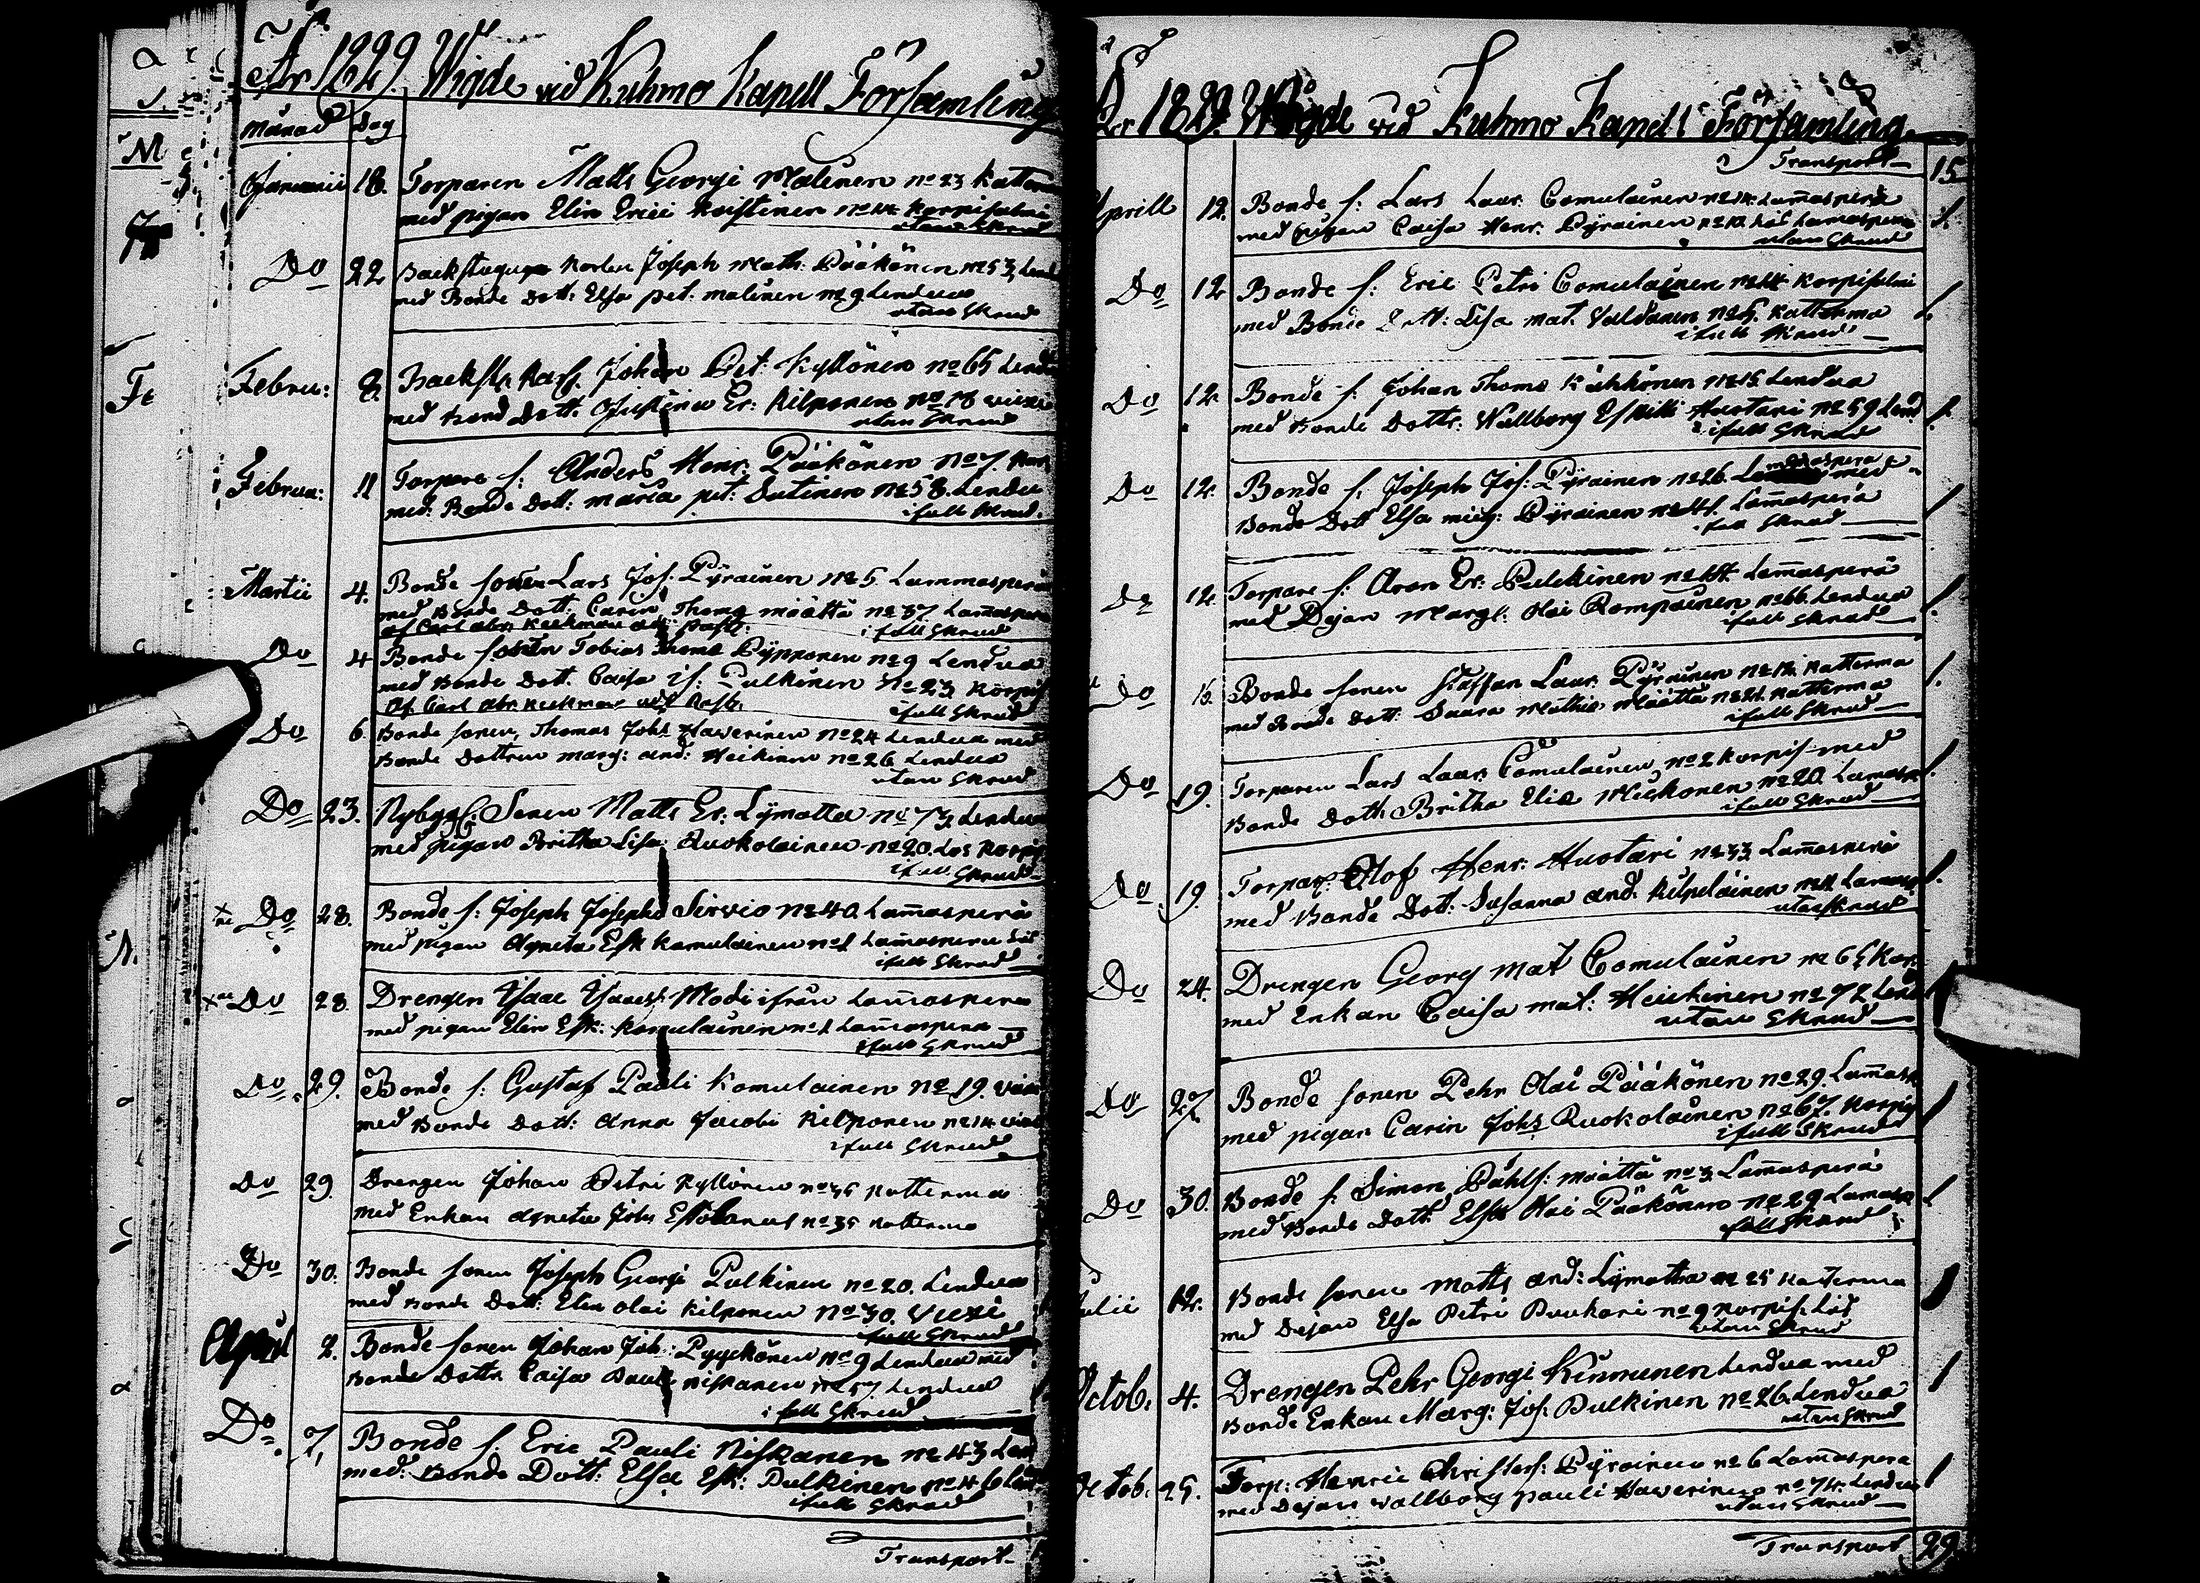 År 1829 Wigde vid Kuhmo Kapell Församling
Månad Dag
Januarii 18. Torparen Matts Georgi Malinen No 23 Katterma
med pigan Elin Erici Koistinen No 14 Korpisalmi
utan Skrud
Do 22 Backstugug Karlen Joseph Math: Pääkönen No 53, Lend
med Bonde Dott: Elsa pet: malinen No 9 Lendua
utan Skrud
Februa: 8. Backst. Karl. Johan Pet: Kyllönen No 65 Lendu
med Bond Dott: Justina Er: Kilponen No 18 viexi
utan Skrud
Februa: 11 Torpare s: Anders Henr: Pääkönen No 7.
med: Bonde Dott: maria pet: Dutinen No 58. Lendu
i full Skrud.
Martii 4. Bonde sonen Lars Jos: Pyrainen No 5 Lammasperä
med Bonde Dott: Carin Thoma määttä No 37 Lam̄aspera
af Carl Abr. Keckman adj: past: i full Skrud
Do 4 Bonde sonen Tobias Thoma Pypponen No 9 Lendua
med Bonde Dott: Caisa is: Pulkinen No 23 Korpis
Af Carl Abr. Keckman adj Past: i full Skrud
Do 6 Bonde sonen, Thomas Johs Haverinen No 24 Lendua med
Bonde Dottren marg: and: Heikinen No 26 Lendua
utan Skrud
Do 23. Nybygg: Sonen Matts Er: Lymatta No 73, Lendua
med pigan Britha Lisa Ruokolainen No 20. Lös Korpis
i full Skrud
Do 28. Bonde s: Joseph Josephs Sirvio No 40 Lam̄asperä
med pigan Agneta Esk Komulainen No 1 Lam̄aspera
i full Skrud
Do 28. Drengen Isaac Isaacs: Modi ifrån Lam̄aspera
med pigan Elin Esk: Komulainen No 1 Lam̄aspera
i full Skrud
Do 29. Bonde s: Gustaf Pauli Komulainen No 19. viexi
med Bonde Dott: Anna Jacobi Kilponen No 14 viexi
i full Skrud
Do 29. Drengen Johan Petri Kyllönen No 35 Katterma
med Enkan Agneta Johs No 35 Katterma
Do 30. Bonde sonen Joseph Georgi Pulkinen No 20. Lendua
med Bonde Dott: Elin Olai Kilponen No 30. Viexi
i full Skrud
April 2. Bonde sonen Johan Joh: Pyykönen No 9 Lendua med
Bonde Dottr. Caisa Pauli Niskanen No 57 Lendua
i full Skrud
Do 7, Bonde s. Eric Pauli Niskanen No 43 Len
med: Bonde Dott: Elsa Esk: Pulkinen No 46
i full Skrud
Transport
År 1829. Wigde vid Kuhmo Kapell Församling
Transport 15
Aprill 12. Bonde s: Lars Laur. Comulainen No 14. Lam̄asperä
med pigan Caisa Henr. Pyrainen No 10. Lös Lamaspera 1
utan Skrud
Do 12 Bonde s: Eric Petri Comulainen No 14 Korpisalmi
med Bonde Dott: Lisa mat. Valdanen No 5. Katterma 1
i full Skrud
Do 12. Bonde s: Johan Thoma Kähkönen No 15. Lendua
med Bonde Dottr: Wallborg Eskilli Huotari No 59 Lend. 1
i full Skrud
Do 12. Bonde s, Joseph Jos: Pyrainen No 26. med
Bonde Dott Elsa mich: Pyrainen No 41 Lam̄asperä 1
i full Skrud
Do 12. Torpare s: Aron Er: Pulckinen No 44 Lam̄asperä
med Dejan Margt: Olai Rompainen No 66. Lendua 1.
i full Skrud
Do 15. Bonde sonen Staffan Laur. Pyrainen No 12. Katterma 1.
med Bonde Dott: Saara Mathie, Määttä No 21. Katterma
i full Skrud
Do 19. Torparen Lars Laur. Comulainen No 2 Korpis med 1.
Bonde Dott: Britha Elia Mickonen No 20. Lamasp
i full Skrud
Do 19. Torpar: Olof Henr: Huotari No 33 Lam̄asperä 1.
med Bonde Dott: Susanna and: Kilpelainen No 11 Lamasp
utan Skrud
Do 24. Drengen Georg Mat Comulainen No 65 Kor
med Enkan Caisa mat: Heickinen No 72 Lend 1
utan Skrud
Do 27. Bonde sonen Pehr Olai Pääkönen No 29. Lam̄asp
med pigan Carin Johs Ruokolainen No 67. Korpis 1
i full Skrud
Do 30. Bonde s: Simon Påhls: määttä No 3 Lam̄asperä 1
med Bonde Dott: Elsa Olai Pääkönen No 29 Lamasp
i full Skrud
Julii 12. Bonde sonen Matts And: Lymatta No 25 Katerma 1
med Dejan Elsa Petri Puukari No 9 Korpis. Lös
utan Skrud
Octob. 4. Drengen Pehr Georgi Kinnunen Lendua med 1
Bonde Enkan Marg: Jos: Pulkinen No 26. Lendua
utan Skrud
Octob. 25. Torp: Henric Christers: Pyrainen No 6 Lamaspera 1
med Dejan Wallborg Pauli Haverinen No 74. Lendua
utan Skrud
Transport 29